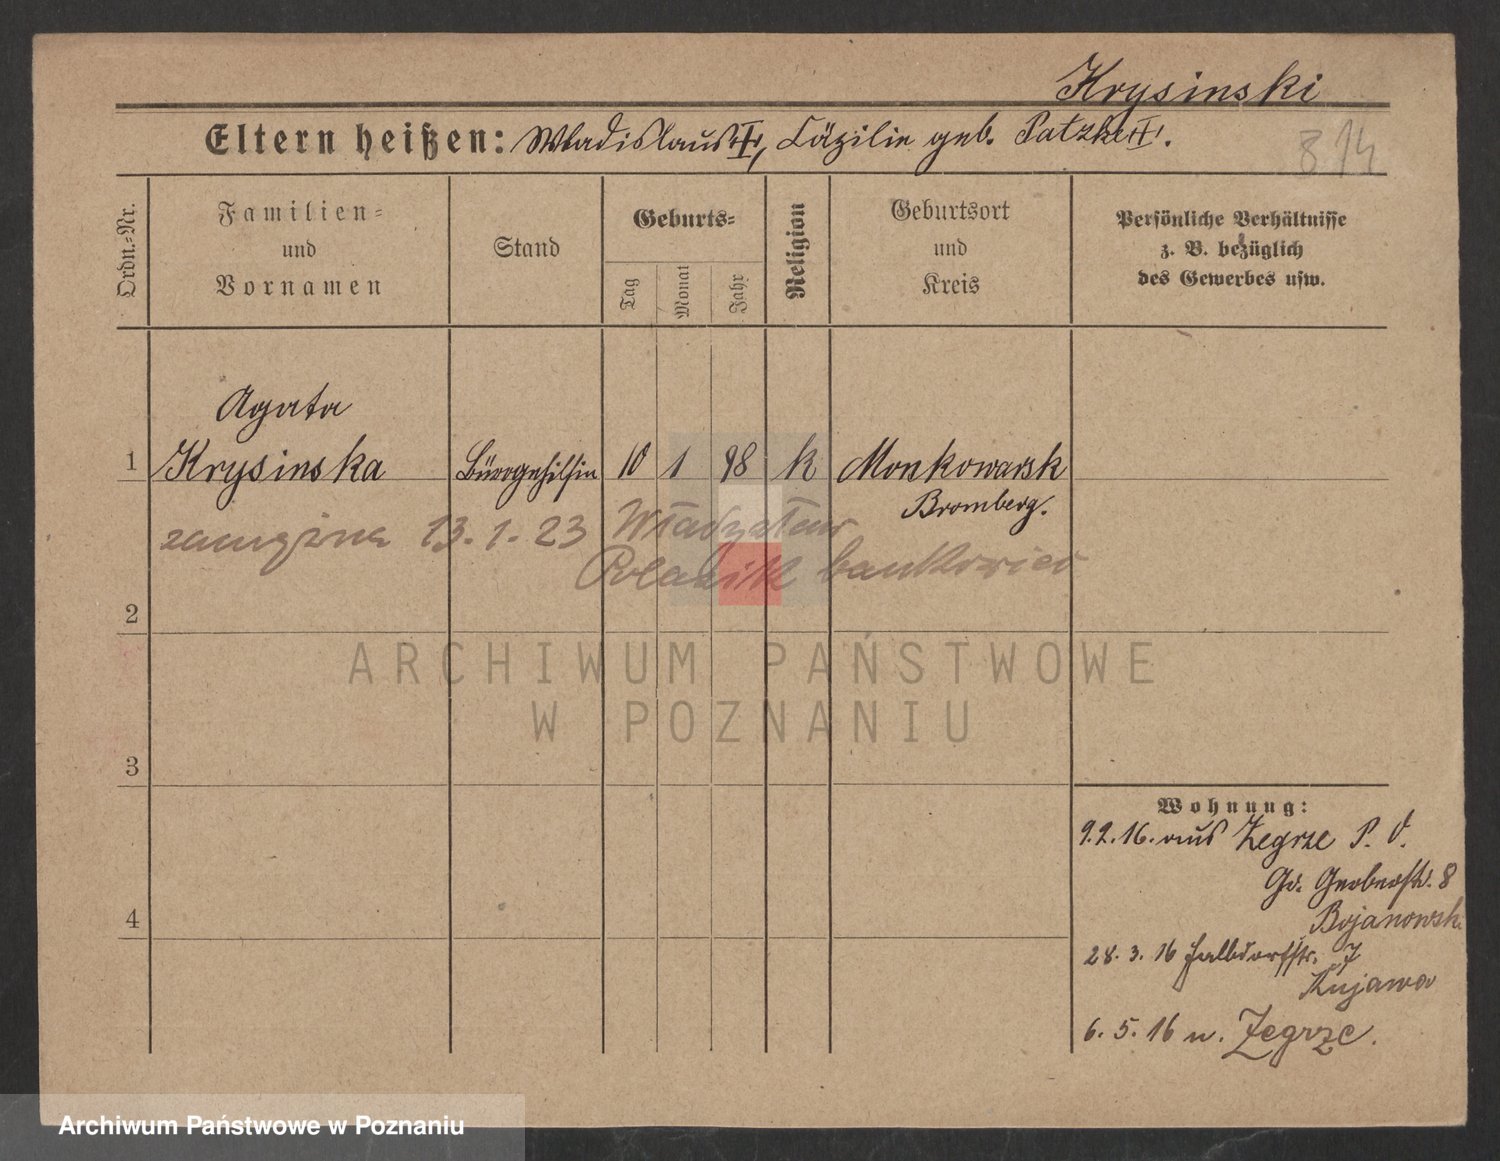 Krysinski
Eltern heißen: Wladislaus †, Cäzilie geb. Patzke †.
814
Ordn.=Nr.
Familien=
und
Vornamen
Stand
Geburts=
Tag
Monat
Jahr
Religion
Geburtsort
und
Kreis
Persönliche Verhältnisse
z. B. bezüglich
des Gewerbes usw.
Agata
1 Krysinska Bürogehilfin 10 1 98 k Monkowarsk
Bromberg.
zamężna 13.1.23
bankowiec
2
ARCHIWUM PAŃSTWOWE
W POZNANIU
3
Wohnung:
9.2.16. aus Zegrze P. O.
Gr. Gerberstr. 8
Bojanowsk
28. 3. 16 7
Kujawa
6. 5. 16 n. Zegrze.
4
Archiwum Państwowe w Poznaniu